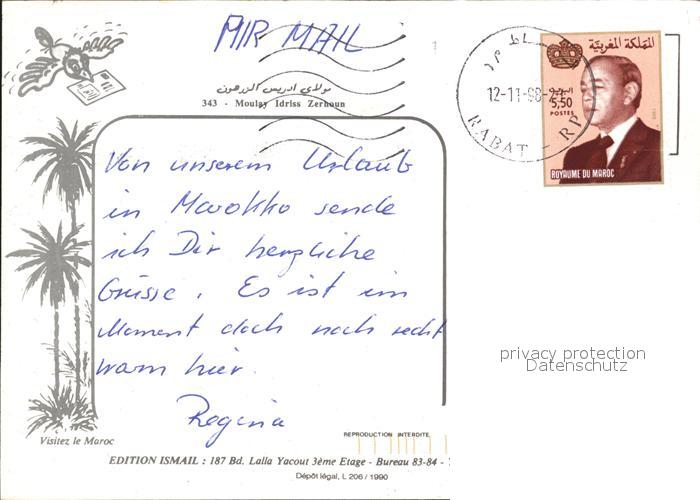 AIR MAIL
مولاي ادريس الزرهون
343 - Moulay Idriss Zerhoun
Von unserem Urlaub
in Marokko sende
ich Dir herzliche
Grüsse. Es ist im
Moment doch noch recht
warm hier.
Regina
Visitez le Maroc
REPRODUCTION INTERDITE
EDITION ISMAIL : 187 Bd. Lalla Yacout 3ème Etage - Bureau 83-84 -
Dépôt légal, L 206 / 1990
المملكة المغربية
5,50
POSTES
ROYAUME DU MAROC
12-11-98
RABAT - RP
privacy protection
Datenschutz